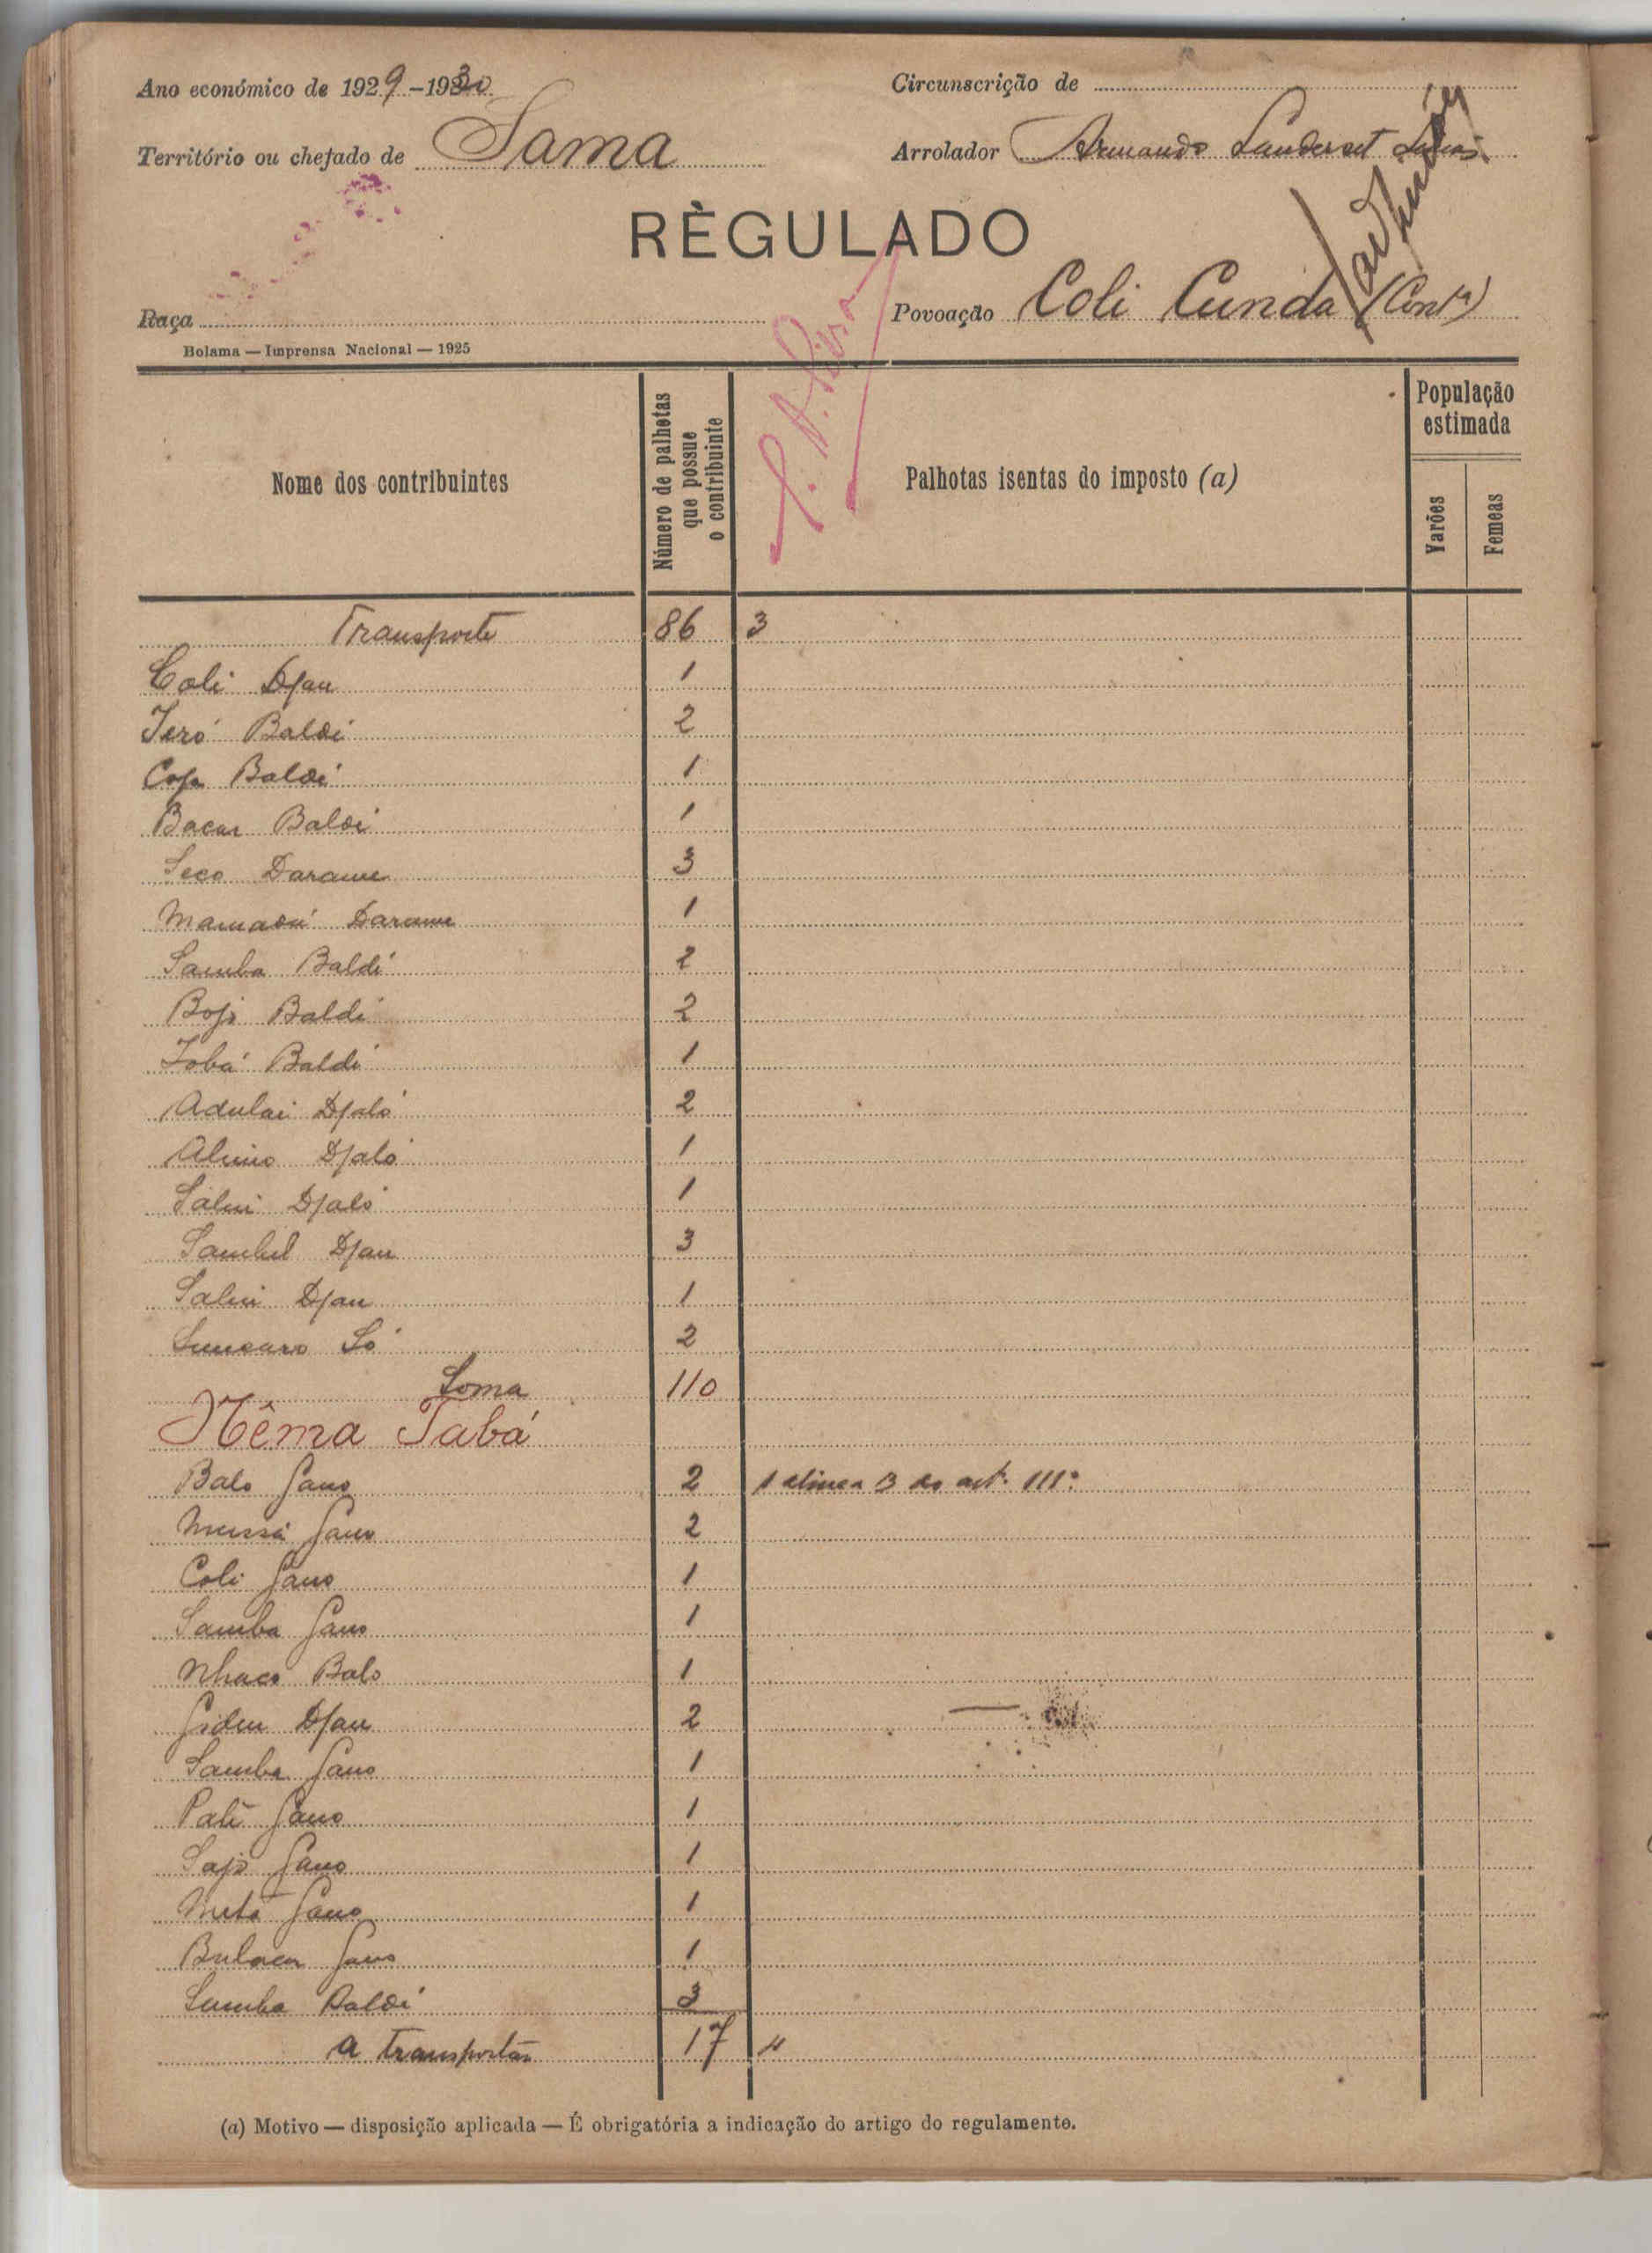 Ano económico de 1929-1930
Circunscrição de
Território ou chefado de Sama
Arrolador Armando
RÈGULADO
Raça
Povoação Coli Cunda (Contª)
Bolama — Imprensa Nacional — 1925
Nome dos contribuintes
Número de palhotas que possue o contribuinte
Palhotas isentas do imposto (a)
População estimada
Varões
Femeas
Transporte 86 3
Coli Djau 1
Jeró Baldé 2
Baldé 1
Bacar Baldé 1
Seco Darame 3
Mamadú Darame 1
Samba Baldé 2
Bojo Baldé 2
Jobá Baldé 1
Adulai Djaló 2
Aliuio Djaló 1
Saliu Djaló 1
Sambel Djau 3
Saliu Djau 1
Suncaro Só 2
Soma 110
Nêma Tabá
Balo Gano 2 1 alinea B do art. 111º
Mussá Gano 2
Coli Gano 1
Samba Gano 1
Nhaco Balo 1
Djau 2
Samba Gano 1
Paté Gano 1
Sajo Gano 1
Gano 1
Gano 1
Samba Baldé 3
A transportar 17 "
(a) Motivo — disposição aplicada — É obrigatória a indicação do artigo do regulamento.